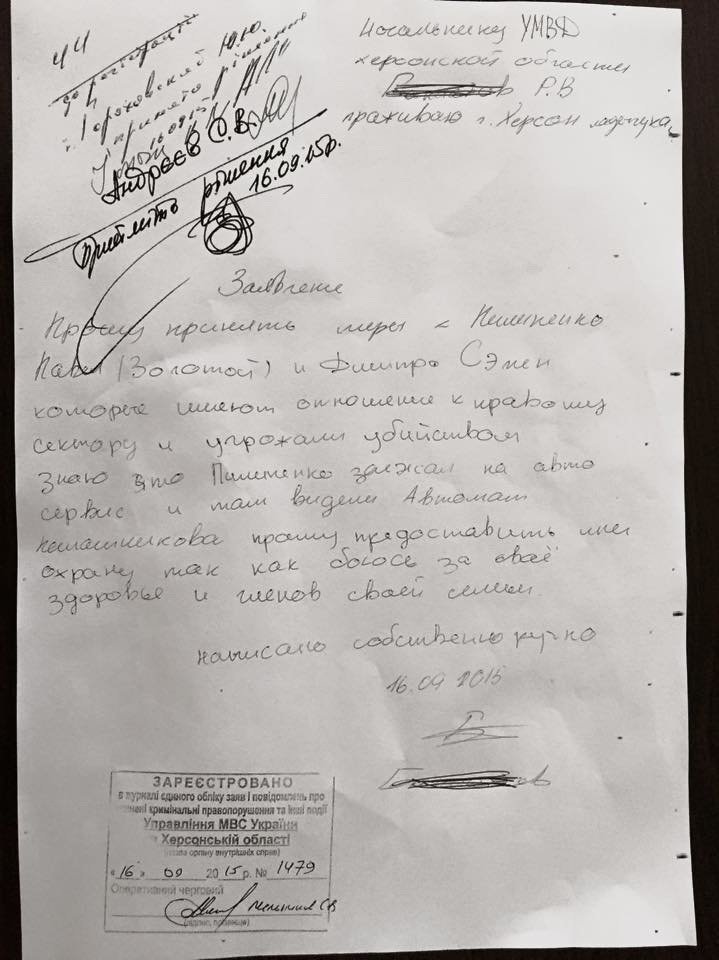 Начальнику УМВД
Херсонской области
Р.В
проживаю г. Херсон
ЧЧ
Гороховский Ю.Ю.
прийняти рішення
16.09.15
Андрєєв С.В.
Прийміть рішення
16.09.15р.
Заявление
Прошу принять меры к
Павел (Золотой) и Дмитро Сэмен
которые имеют отношение к правому
сектору и угрожали убийством
знаю что заежал на авто
сервис и там видели Автомат
Калашникова прошу предоставить мне
охрану так как боюсь за своё
здоровье и членов своей семьи.
написано собственно ручно
16.09 2015
ЗАРЕЄСТРОВАНО
в журналі єдиного обліку заяв і повідомлень про
вчинені кримінальні правопорушення та інші події
Управління МВС України
в Херсонській області
(назва органу внутрішніх справ)
"16" 09 2015 р. № 1479
Оперативний черговий
(підпис, прізвище)